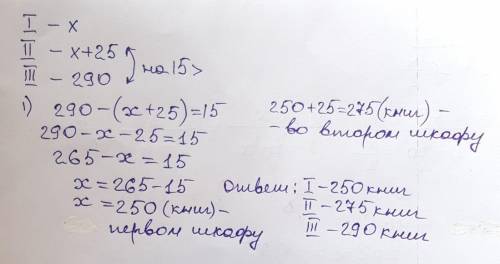 I - x
II - x+25
III - 290
на 15 >
1) 290-(x+25)=15
290-x-25=15
265-x=15
x=265-15
x=250 (книг) -
первом шкафу
250+25=275 (книг) -
- во втором шкафу
Ответ: I - 250 книг
II - 275 книг
III - 290 книг